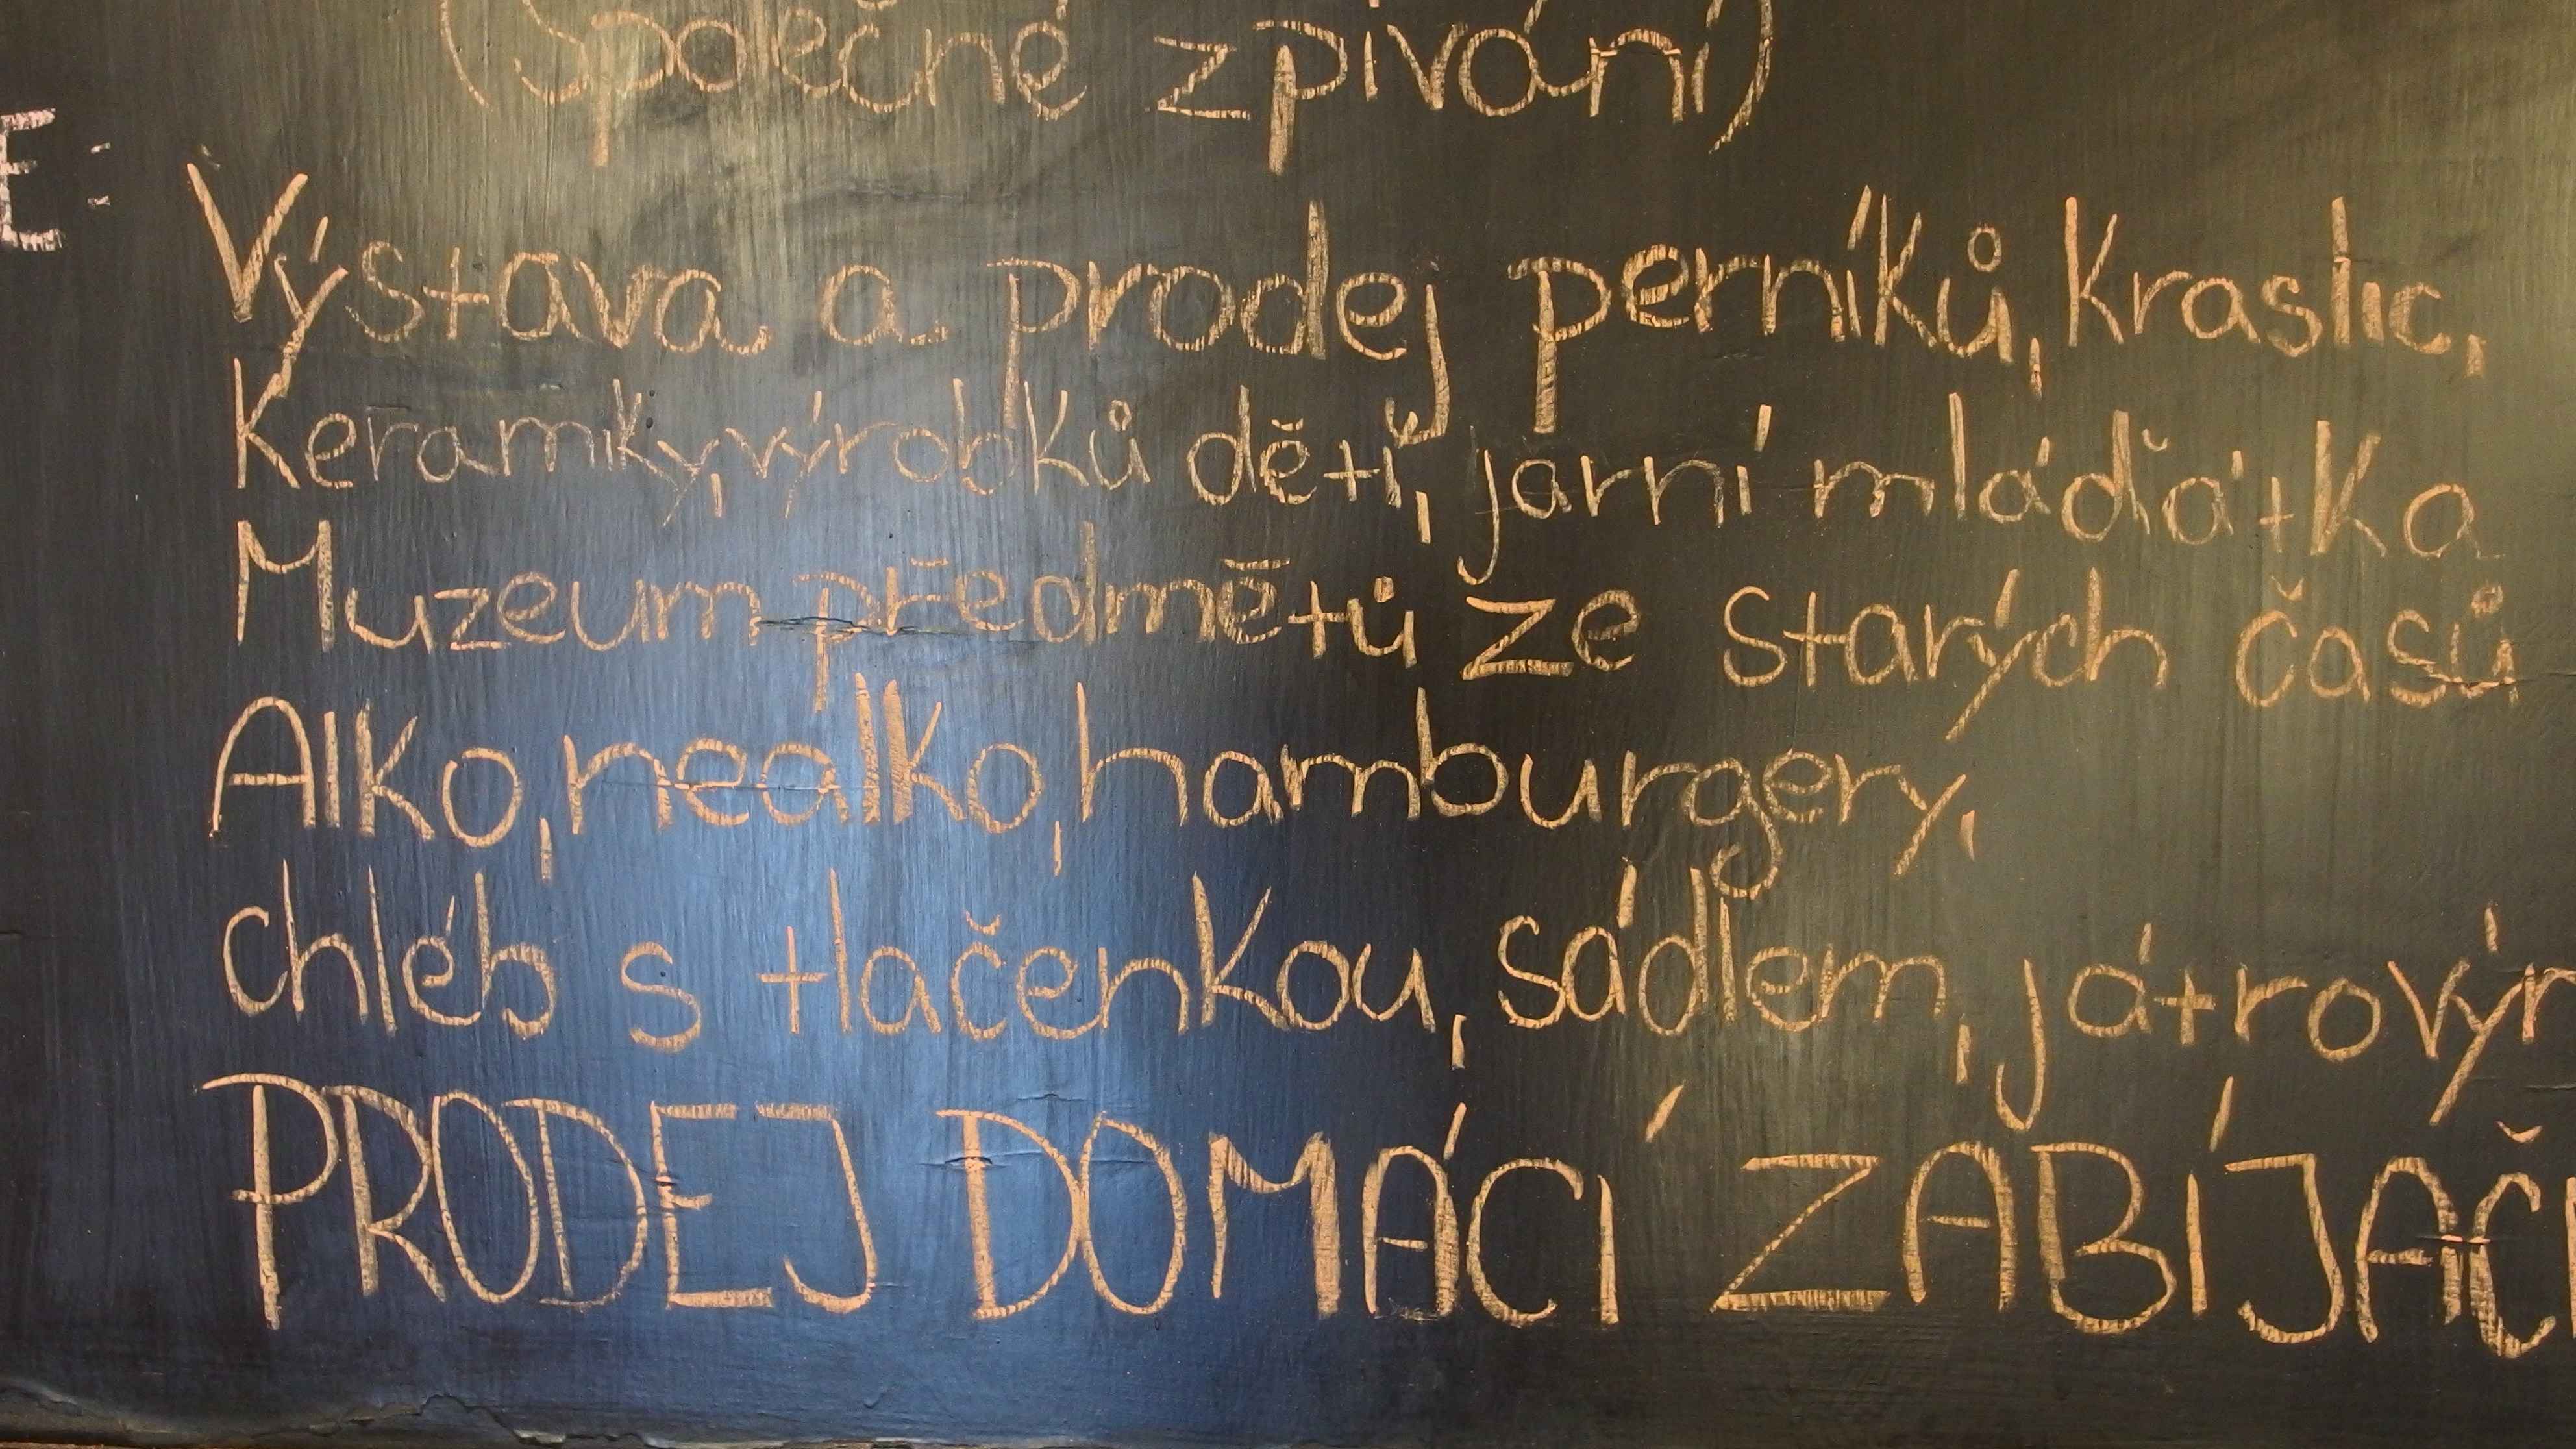 (Společné zpívání)
E:
Výstava a prodej perníků, kraslic,
Keramiky, výrobků dětí, jarní mláďátka
Muzeum předmětů ze starých časů
Alko, nealko, hamburgery,
chléb s tlačenkou, sádlem, játrovým
PRODEJ DOMÁCÍ ZABÍJAČ